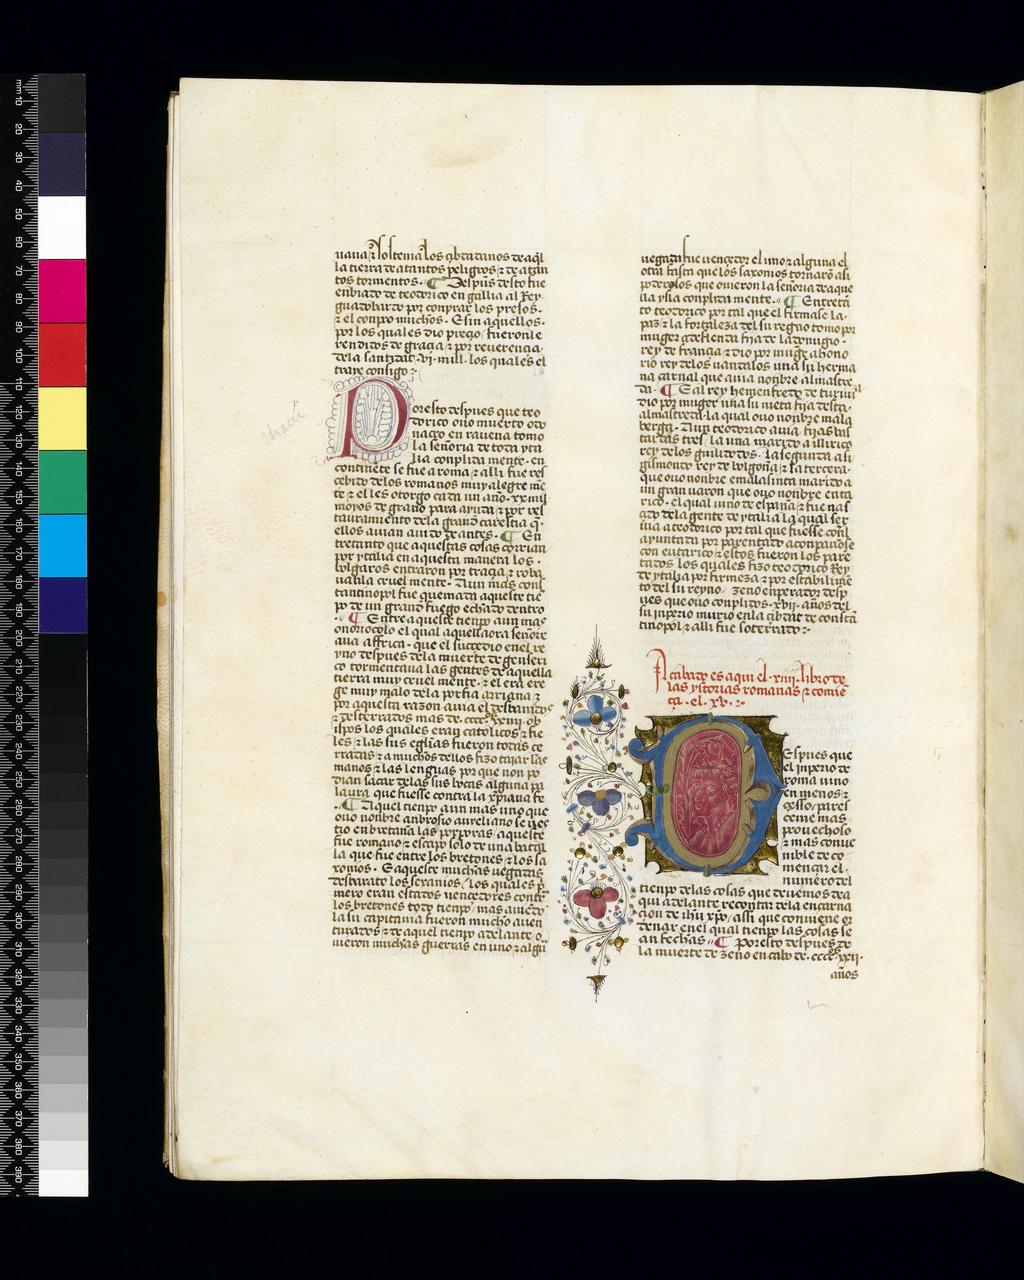 la tierra de atantos peligros ⁊ de atan
tos tormentos. ¶ Despues desto fue
enbiado de teodorico en gallia al Rey
guadobardo por conprar los presos.
⁊ el conpro muchos. E sin aquellos
por los quales dio preçio / fueronle
rendidos de graçia ⁊ por reuerençia
dela santidat .vi. mill. los quales el
traxo consigo :~
Por esto despues que teo
dorico ouo muerto odo
nacro en rauena tomo
la señoria de toda yta
lia conplida mente. en
continēte se fue a roma ⁊ alli fue res
cebido delos romanos muy alegre mē
te ⁊ el les otorgo cada un año .xx mill
moyos de grano para ayuda ⁊ por res
tauramiento dela grand carestia q̄
ellos auian auido de antes. ¶ En
tretanto que aquestas cosas corrian
por ytalia en aquesta manera los
bolgaros entraron por traçia ⁊ roba
uanla cruel mente. Aun mas cons
tantinopol fue quemada aqueste tiē
po de un grand fuego echado dentro
¶ Entre aqueste tienpo aun mas
onoricolo el qual aquella ora señore
aua affrica. que el sucedio en el re
yno despues dela muerte de genseri
co tormentaua las gentes de aquella
tierra muy cruel mente. ⁊ el era ere
ge muy malo dela porfia arriana ⁊
por aquesta razon auia el
⁊ desterrados mas de .ccc. xxxiiij. ob
ispos los quales eran catolicos ⁊ fie
les ⁊ las sus eglias fueron todas çe
rradas ⁊ a muchos dellos fizo tajar las
manos ⁊ las lenguas por que non po
dian sacar delas sus bocas alguna pa
laura que fuesse contra la xp̄iana fe
¶ Aquel tienpo aun mas uno que
ouo nonbre anbrosio aureliano se uez
tio en bretana las porporas / aqueste
fue romano ⁊ escapo solo de una batal
la que fue entre los bretones ⁊ los sa
xonios. E aqueste muchas uegadas
desbarato los saxonios / los quales p̄
mero eran estados uençedores contra
los bretones todo tienpo / mas auiēdo
la su capitania fueron mucho auen
turados ⁊ de aquel tienpo adelante o
uieron muchas guerras en uno ⁊ algu
uegada fue uençedor el uno ⁊ alguna el
otra fasta que los saxonios tornarō asi
poderosos que ouieron la señoria de aque
lla ysla conplida mente. ¶ Entretā
to teodorico por tal que el firmase la
paz ⁊ la fortaleza del su regno tomo por
muger
rey de françia ⁊ dio por muger a hono
rio rey delos uandalos una su herma
na carnal que auia nonbre almastre
da. ¶ E al rey hemenfredo de turini
dio por muger una su nieta fija desta
almastreda la qual ouo nonbre mala
berga. Aun teodorico auia fijas bas
tardas tres / la una marido a illirico
rey delos guisidodos. la segunda a si
gismondo rey de bolgoña ⁊ la tercera
que ouo nonbre emalasinta marido a
un gran uaron que ouo nonbre euta
rico. el qual uino de españa ⁊ fue nas
cido dela gente de ytalia la qual ser
uia a teodorico por tal que fuesse conl
ayuntada por parentado aconpañose
con eutarico ⁊ estos fueron los pare
tados los quales fizo teodorico Rey
de ytalia por firmeza ⁊ por establimiē
to del su reyno / zeno enperador desp
ues que ouo conplidos .xvij. años del
su inperio murio en la çibdat de constā
tinopol ⁊ alli fue soterrado :~
Acabado es aqui el .xiiij. libro de
las ystorias romanas ⁊ comiē
ça .el .xv. :~
Despues que
el inperio de
roma uino
en menos ⁊
çesso / pares
ceme mas
prouechoso
⁊ mas conue
nible de co
mençar el
numero del
tienpo delas cosas que deuemos dea
qui adelante recontar dela encarna
çion de ihū xp̄o / assi que conuiene or
denar en el qual tienpo las cosas se
an fechas. ¶ Por esto despues de
la muerte de zeno en cabo de .cccc. xxii.
años